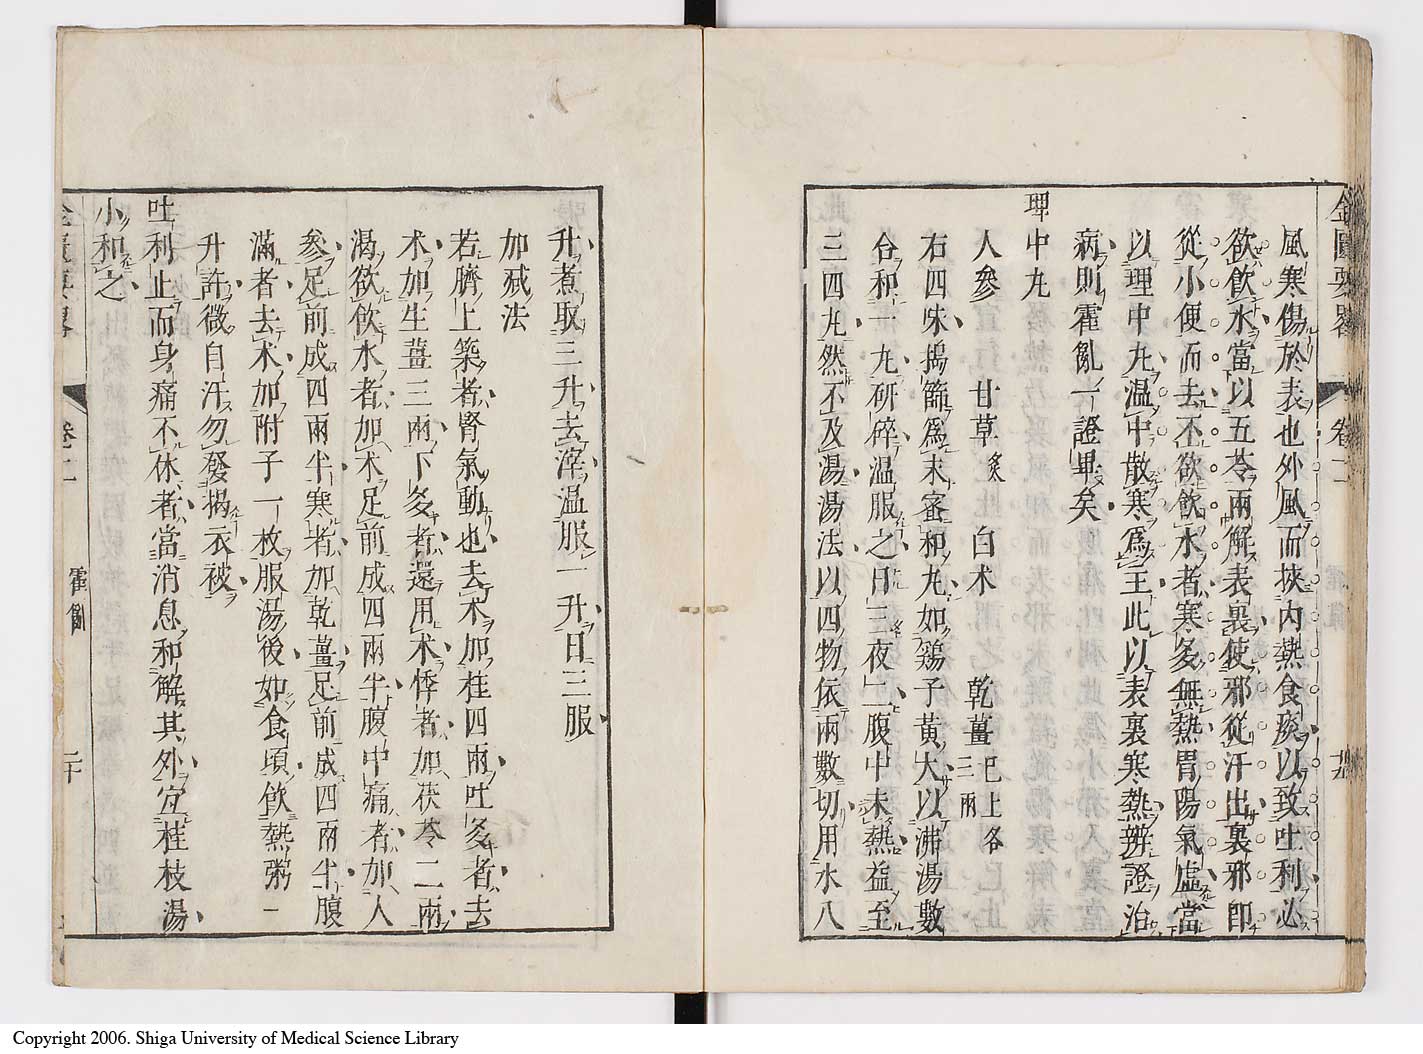 金匱要畧 卷二 十九
風寒傷於表也外風而挾內熱食痰以致吐利必
欲飲水當以五苓兩解表裏使邪從汗出裏邪即
從小便而去不欲飲水者寒多無熱胃陽氣虛當
以理中丸温中散寒爲主此以表裏寒熱辨證治
病則霍亂一證畢矣
理中丸
人參 甘草炙 白术 乾薑已上各三兩
右四味搗篩爲末蜜和丸如鷄子黃大以沸湯數
合和一丸研碎温服之日三夜二腹中未熱益至
三四丸然不及湯湯法以四物依兩數切用水八
升煮取三升去滓温服一升日三服
加减法
若臍上築者腎氣動也去术加桂四兩吐多者去
术加生薑三兩下多者還用术悸者加茯苓二兩
渴欲飲水者加术足前成四兩半腹中痛者加人
參足前成四兩半寒者加乾薑足前成四兩半腹
滿者去术加附子一枚服湯後如食頃飲熱粥一
升許微自汗勿發揭衣被
吐利止而身痛不休者當消息和解其外宜桂枝湯
小和之
金匱要畧 卷二 霍亂 二十
Copyright 2006. Shiga University of Medical Science Library